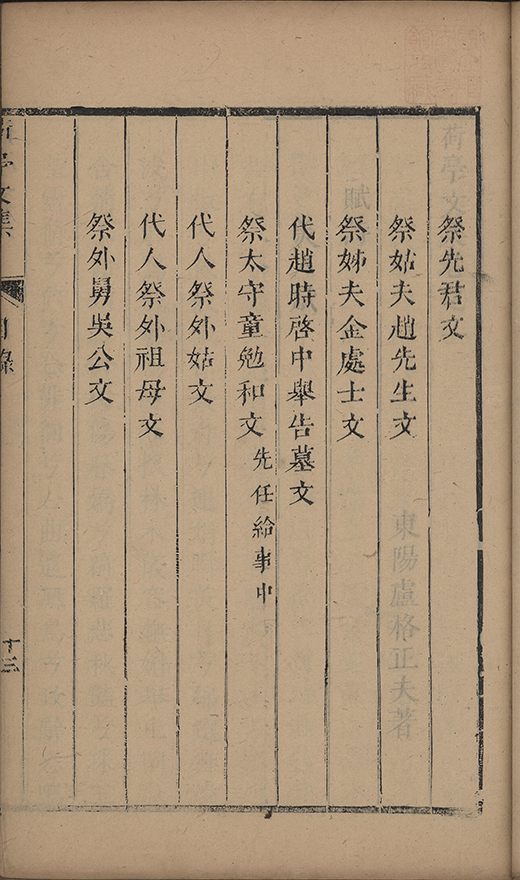 祭先君文
祭姑夫趙先生文
祭姊夫金處士文
代趙時啓中舉告墓文
祭太守童勉和文先任給事中
代人祭外姑文
代人祭外祖母文
祭外舅吳公文
文集
目錄
十三
東陽盧格正夫著
荷亭文
賦